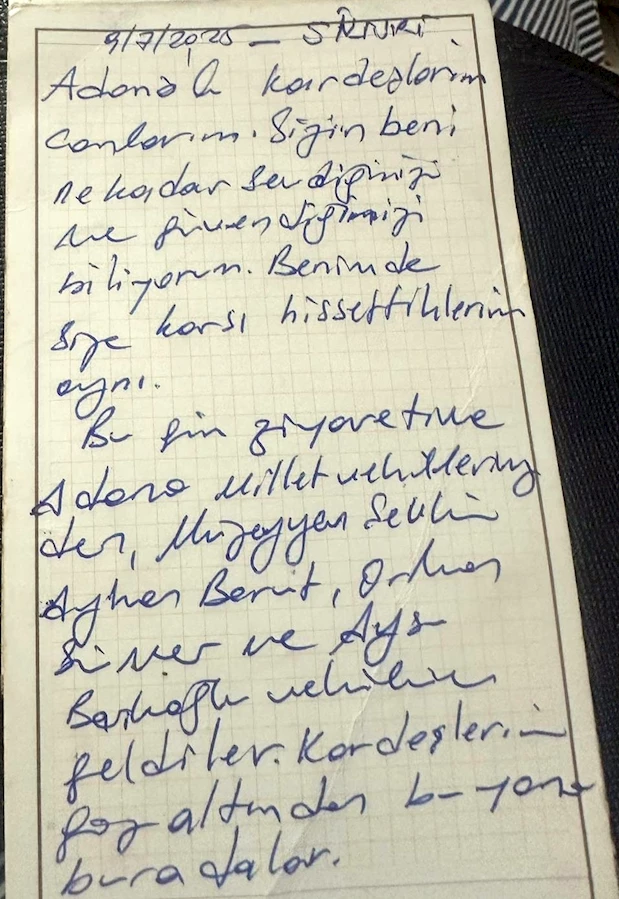 9/7/2025 - SİLİVRİ
Adanalı kardeşlerim
canlarım. Sizin beni
ne kadar sevdiğinizi
ve güvendiğinizi
biliyorum. Benim de
size karşı hissettiklerim
aynı.
Bu gün ziyaretime
Adana Milletvekillerimiz
den, Müzeyyen Şevkin
Ayhan Barut, Orhan
Sümer ve
vekilim
geldiler. Kardeşlerim
göz altından bu yana
buradalar.